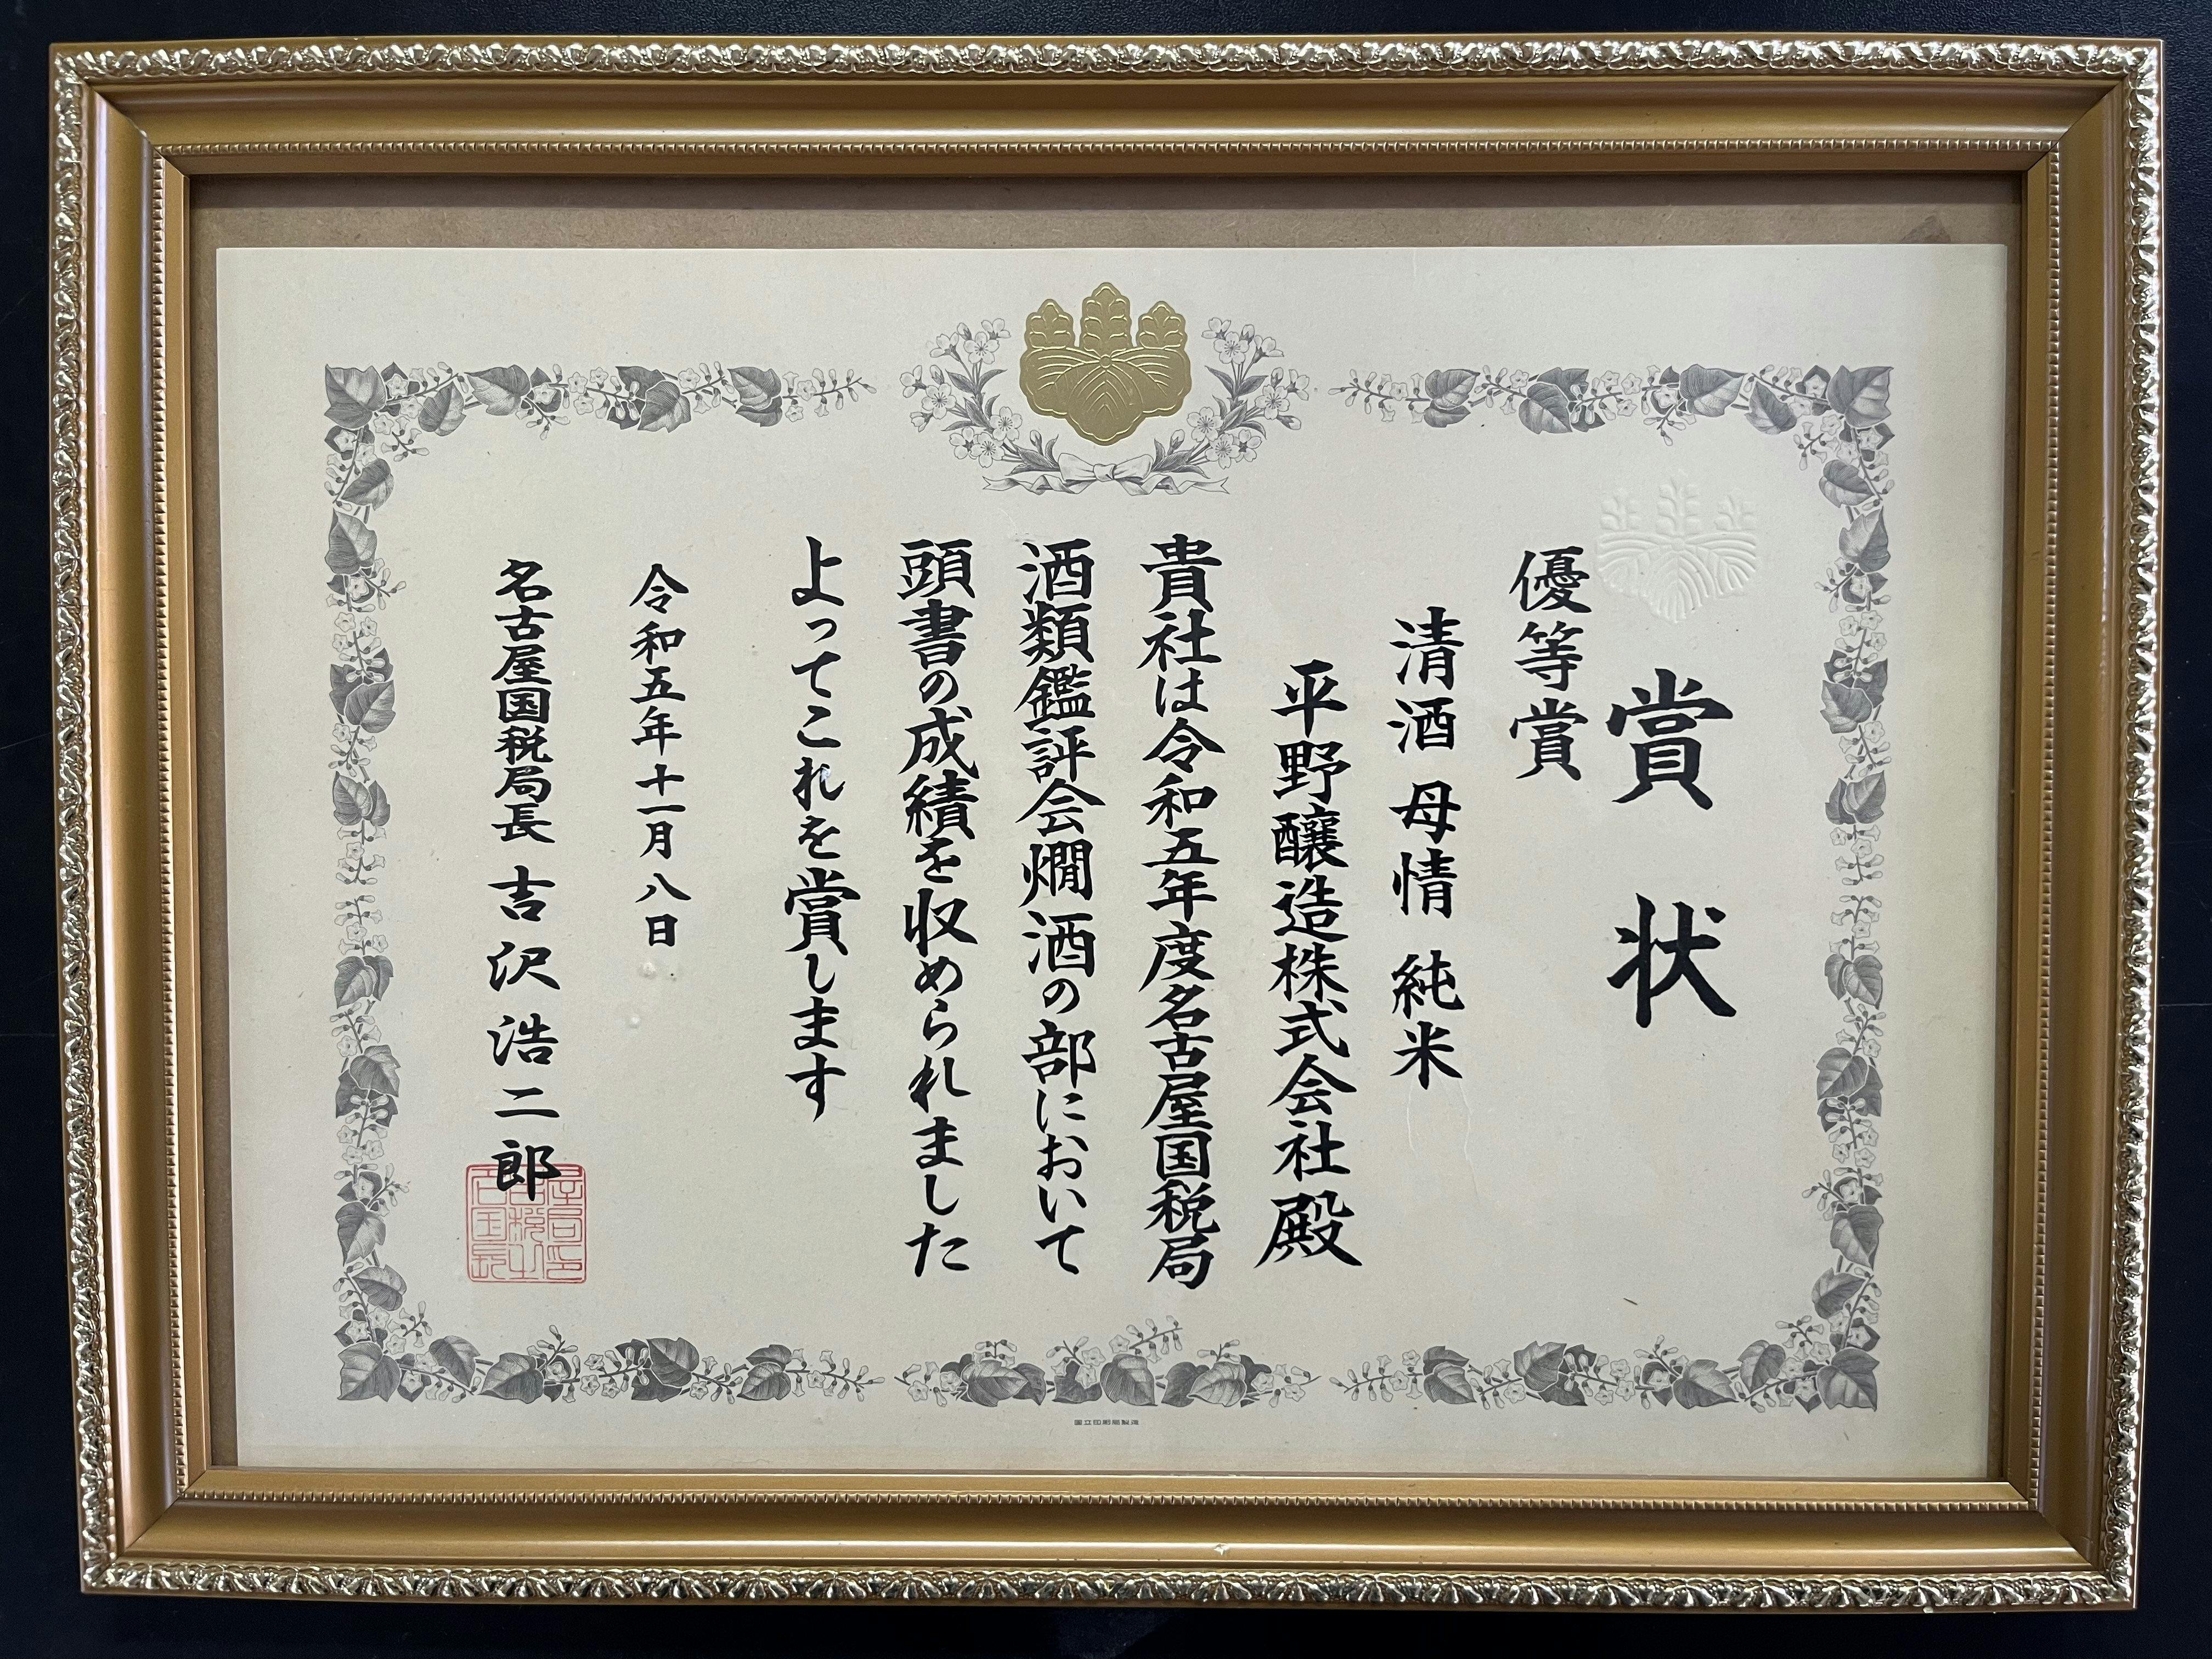 賞状
優等賞
清酒 母情 純米
平野醸造株式会社 殿
貴社は令和五年度名古屋国税局
酒類鑑評会燗酒の部において
頭書の成績を収められました
よってこれを賞します
令和五年十一月八日
名古屋国税局長 吉沢浩二郎
国立印刷局製造